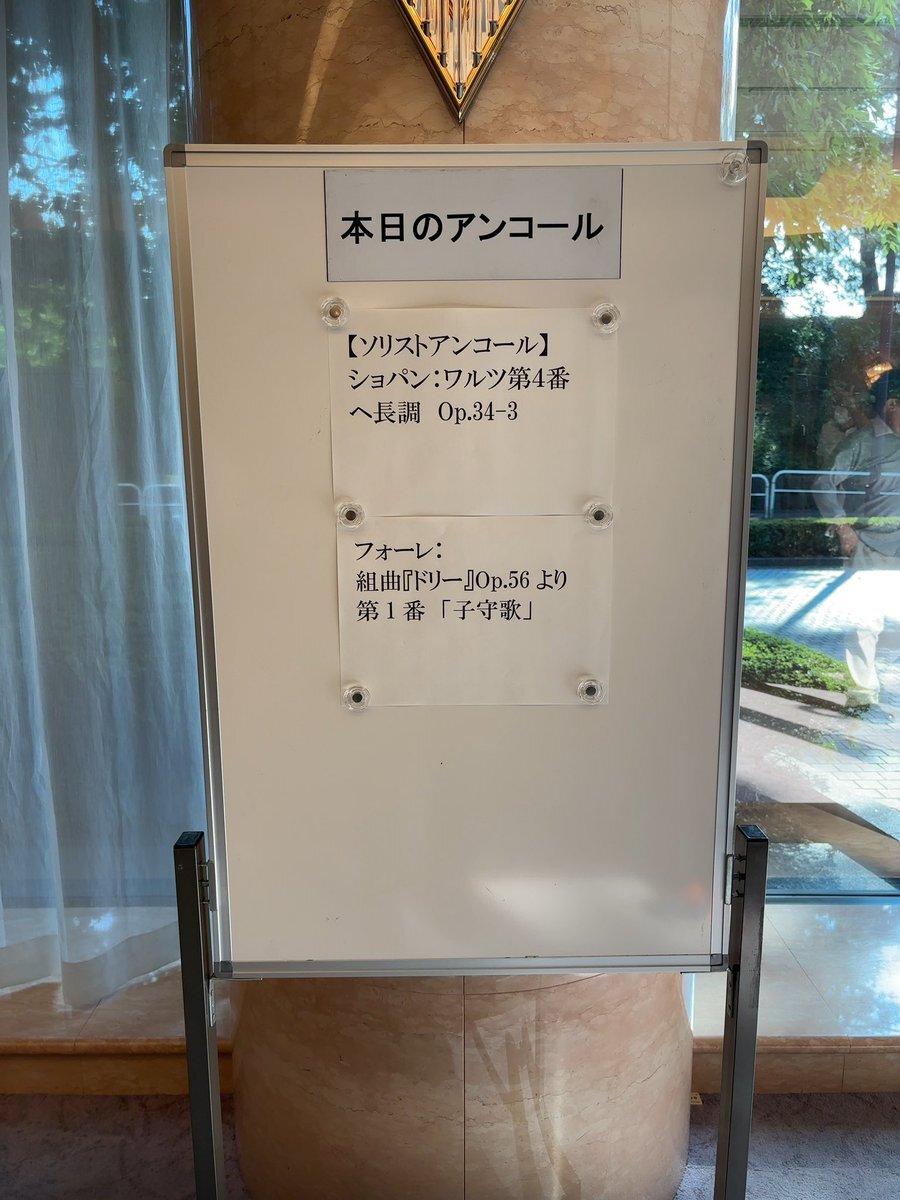 本日のアンコール
【ソリストアンコール】
ショパン：ワルツ第4番
ヘ長調　Op.34-3
フォーレ：
組曲『ドリー』Op.56 より
第１番 「子守歌」